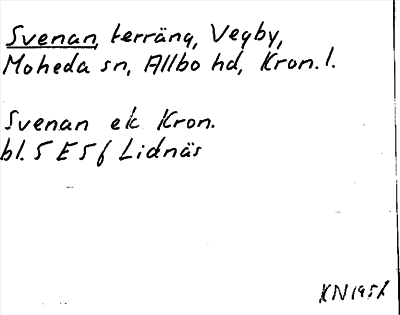 Svenan, terräng, Vegby,
Moheda sn, Allbo hd, Kron. l.
Svenan ek Kron.
bl. 5 E 5 f Lidnäs